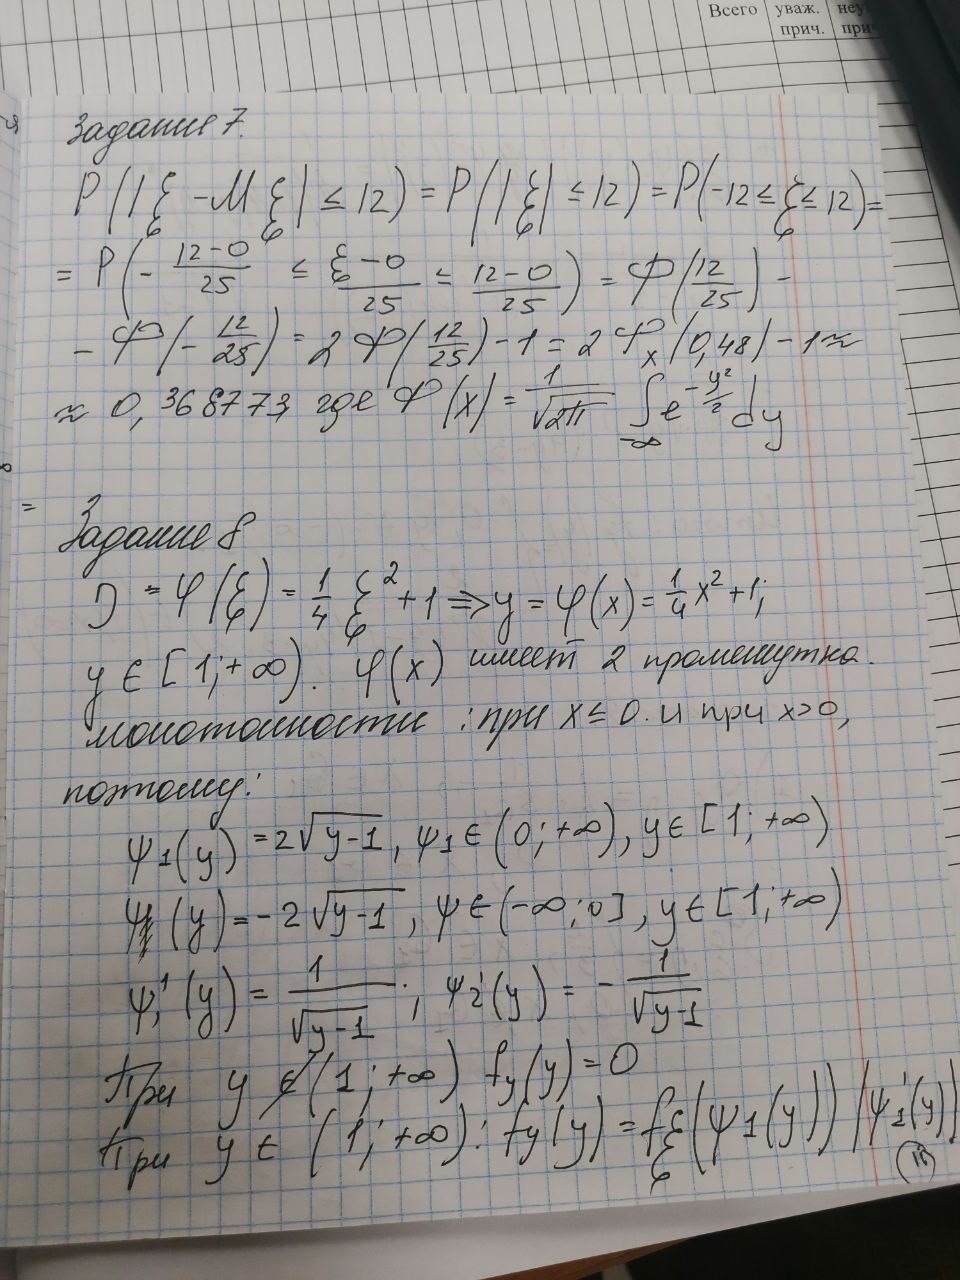 Всего уваж. неу
прич. прич
Задание 7.
P(|ξ - Mξ| ≤ 12) = P(|ξ| ≤ 12) = P(-12 ≤ ξ ≤ 12) =
= P(- (12-0)/25 ≤ (ξ-0)/25 ≤ (12-0)/25) = Ф(12/25) -
- Ф(-12/25) = 2Ф(12/25) - 1 = 2Фx(0,48) - 1 ≈
≈ 0,368773, где Ф(x) = 1/√2π ∫_{-∞} e^{-y²/2} dy
=
Задание 8
η = φ(ξ) = 1/4 ξ² + 1 => y = φ(x) = 1/4 x² + 1;
y ∈ [1; +∞). φ(x) имеет 2 промежутка
монотонности: при x ≤ 0 и при x > 0,
поэтому:
ψ1(y) = 2√(y-1), ψ1 ∈ (0; +∞), y ∈ [1; +∞)
ψ(y) = -2√(y-1), ψ ∈ (-∞; 0], y ∈ [1; +∞)
ψ1'(y) = 1/√(y-1); ψ2'(y) = - 1/√(y-1)
При y ∉ (1; +∞) fy(y) = 0
При y ∈ (1; +∞): fy(y) = fξ(ψ1(y)) |ψ1'(y)|